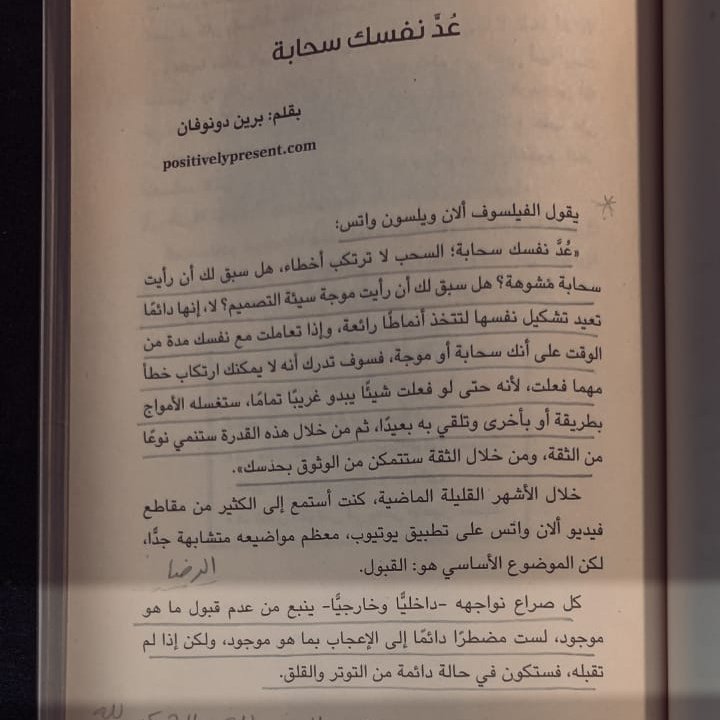 عُدَّ نفسك سحابة
بقلم: برين دونوفان
positivelypresent.com
يقول الفيلسوف ألان ويلسون واتس:
«عُدَّ نفسك سحابة؛ السحب لا ترتكب أخطاء، هل سبق لك أن رأيت
سحابة مُشوهة؟ هل سبق لك أن رأيت موجة سيئة التصميم؟ لا، إنها دائمًا
تعيد تشكيل نفسها لتتخذ أنماطًا رائعة، وإذا تعاملت مع نفسك مدة من
الوقت على أنك سحابة أو موجة، فسوف تدرك أنه لا يمكنك ارتكاب خطأ
مهما فعلت، لأنه حتى لو فعلت شيئًا يبدو غريبًا تمامًا، ستغسله الأمواج
بطريقة أو بأخرى وتلقي به بعيدًا، ثم من خلال هذه القدرة ستنمي نوعًا
من الثقة، ومن خلال الثقة ستتمكن من الوثوق بحدسك».
خلال الأشهر القليلة الماضية، كنت أستمع إلى الكثير من مقاطع
فيديو ألان واتس على تطبيق يوتيوب، معظم مواضيعه متشابهة جدًّا،
لكن الموضوع الأساسي هو: القبول.
الرضا
كل صراع نواجهه –داخليًّا وخارجيًّا– ينبع من عدم قبول ما هو
موجود، لست مضطرًا دائمًا إلى الإعجاب بما هو موجود، ولكن إذا لم
تقبله، فستكون في حالة دائمة من التوتر والقلق.
لله